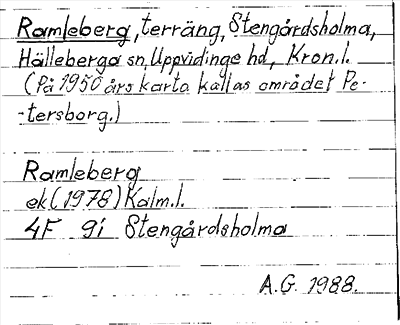 Ramleberg, terräng, Stengårdsholma,
Hälleberga sn, Uppvidinge hd, Kron.l.
(På 1950 års karta kallas området Pe-
-tersborg.)
Ramleberg
ek (1978) Kalm.l.
4F 9i Stengårdsholma
A.G. 1988.